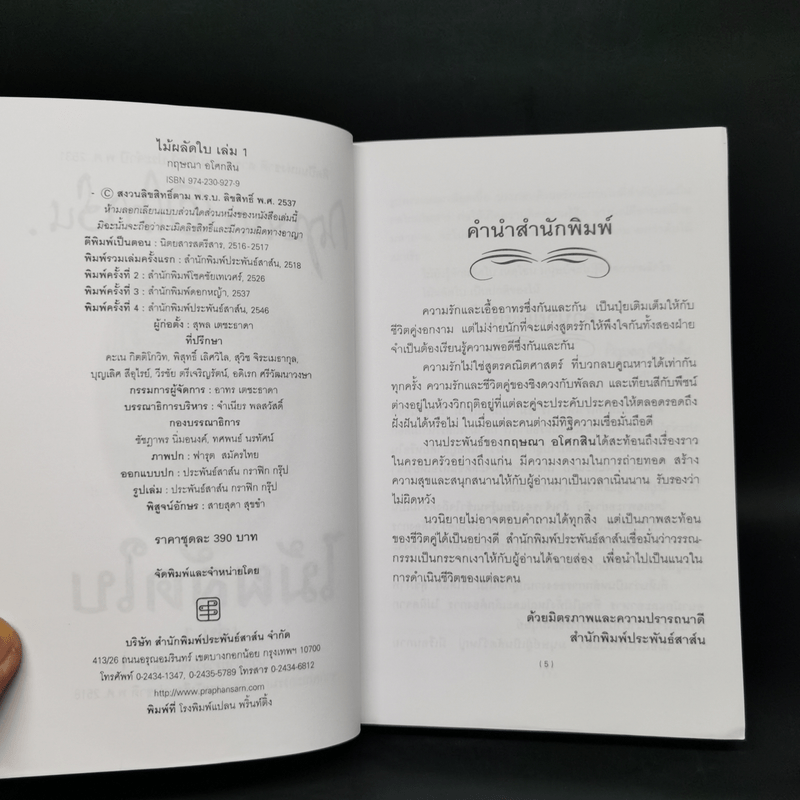 ไม้ผลัดใบ เล่ม 1
กฤษณา อโศกสิน
ISBN 974-230-927-9
- © สงวนลิขสิทธิ์ตาม พ.ร.บ. ลิขสิทธิ์ พ.ศ. 2537
ห้ามลอกเลียนแบบส่วนใดส่วนหนึ่งของหนังสือเล่มนี้
มิฉะนั้นจะถือว่าละเมิดลิขสิทธิ์และมีความผิดทางอาญา
ตีพิมพ์เป็นตอน : นิตยสารสตรีสาร, 2516-2517
พิมพ์รวมเล่มครั้งแรก : สำนักพิมพ์ประพันธ์สาส์น, 2518
พิมพ์ครั้งที่ 2 : สำนักพิมพ์โชคชัยเทเวศร์, 2526
พิมพ์ครั้งที่ 3 : สำนักพิมพ์ดอกหญ้า, 2537
พิมพ์ครั้งที่ 4 : สำนักพิมพ์ประพันธ์สาส์น, 2546
ผู้ก่อตั้ง : สุพล เตชะธาดา
ที่ปรึกษา
คะเน กิตติโกวิท, พิสุทธิ์ เลิศวิไล, สุวิช จิระเมธากุล,
บุญเลิศ สีอุไรย์, วีรชัย ตรีเจริญรัตน์, อดิเรก ศรีวัฒนาวงษา
กรรมการผู้จัดการ : อาทร เตชะธาดา
บรรณาธิการบริหาร : จำเนียร พลสวัสดิ์
กองบรรณาธิการ
ชัชฎาพร นิ่มอนงค์, ทศพนธ์ นรทัศน์
ภาพปก : ฟารุต สมัครไทย
ออกแบบปก : ประพันธ์สาส์น กราฟิก กรุ๊ป
รูปเล่ม : ประพันธ์สาส์น กราฟิก กรุ๊ป
พิสูจน์อักษร : สายสุดา สุขขำ
ราคาชุดละ 390 บาท
จัดพิมพ์และจำหน่ายโดย
บริษัท สำนักพิมพ์ประพันธ์สาส์น จำกัด
413/26 ถนนอรุณอมรินทร์ เขตบางกอกน้อย กรุงเทพฯ 10700
โทรศัพท์ 0-2434-1347, 0-2435-5789 โทรสาร 0-2434-6812
http://www.praphansarn.com
พิมพ์ที่ โรงพิมพ์แปลน พริ้นท์ติ้ง
คำนำสำนักพิมพ์
ความรักและเอื้ออาทรซึ่งกันและกัน เป็นปุ๋ยเติมเต็มให้กับ
ชีวิตคู่งอกงาม แต่ไม่ง่ายนักที่จะแต่งสูตรรักให้พึงใจกันทั้งสองฝ่าย
จำเป็นต้องเรียนรู้ความพอดีซึ่งกันและกัน
ความรักไม่ใช่สูตรคณิตศาสตร์ ที่บวกลบคูณหารได้เท่ากัน
ทุกครั้ง ความรักและชีวิตคู่ของชิงดวงกับพัลลภ และเทียนสีกับพืชน์
ต่างอยู่ในห้วงวิกฤติอยู่ที่แต่ละคู่จะประคับประคองให้ตลอดรอดถึง
ฝั่งฝันได้หรือไม่ ในเมื่อแต่ละคนต่างมีทิฐิความเชื่อมั่นถือดี
งานประพันธ์ของกฤษณา อโศกสินได้สะท้อนถึงเรื่องราว
ในครอบครัวอย่างถึงแก่น มีความงดงามในการถ่ายทอด สร้าง
ความสุขและสนุกสนานให้กับผู้อ่านมาเป็นเวลาเนิ่นนาน รับรองว่า
ไม่ผิดหวัง
นวนิยายไม่อาจตอบคำถามได้ทุกสิ่ง แต่เป็นภาพสะท้อน
ของชีวิตคู่ได้เป็นอย่างดี สำนักพิมพ์ประพันธ์สาส์นเชื่อมั่นว่าวรรณ-
กรรมเป็นกระจกเงาให้กับผู้อ่านได้ฉายส่อง เพื่อนำไปเป็นแนวใน
การดำเนินชีวิตของแต่ละคน
ด้วยมิตรภาพและความปรารถนาดี
สำนักพิมพ์ประพันธ์สาส์น
(5)